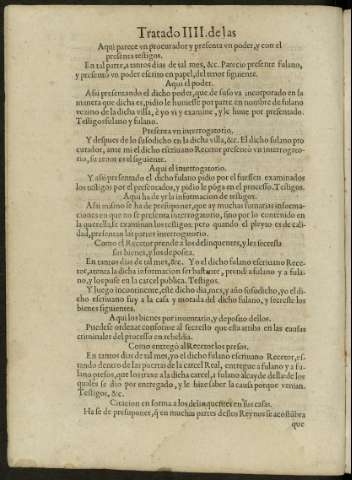 Tratado IIII. de las
Aqui parece vn procurador y presenta vn poder, y con el
presenta testigos.
En tal parte, a tantos dias de tal mes, &c. Parecio presente fulano,
y presentò vn poder escrito en papel, del tenor siguiente.
Aqui el poder.
Assi presentando el dicho poder, que de suso va incorporado en la
manera que dicha es, pidio le huuiesse por parte en nombre de fulano
vezino de la dicha villa, è yo vi y examinè, y le huue por presentado.
Testigos fulano y fulano.
Presenta vn interrogatorio.
Y despues de lo susodicho en la dicha villa, &c. El dicho fulano pro
curador, ante mi el dicho escriuano Recetor presentò vn interrogato-
rio, su tenor es el siguiente.
Aqui el interrogatorio.
Y assi presentado el dicho fulano pidio por el fuessen examinados
los testigos por el presentados, y pidio le põga en el processo. Testigos.
Aqui ha de yr la informacion de testigos.
Assi mismo se ha de presuponer, que ay muchas sumarias informa-
ciones en que no se presenta interrogatorio, sino por lo contenido en
la querella se examinan los testigos: pero quando el pleyto es de cali-
dad, presentan las partes interrogatorio.
Como el Recetor prende a los delinquentes, y les secresta
sus bienes, y los deposita.
En tantos dias de tal mes, &c. Yo el dicho fulano escriuano Rece-
tor, atenta la dicha informacion ser bastante, prendi a fulano y a fula-
no, y los puse en la carcel publica. Testigos.
Y luego incontinente, este dicho dia, mes, y año susodicho, yo el di-
cho escriuano fuy a la casa y morada del dicho fulano, y secrestè los
bienes siguientes.
Aqui los bienes por inuentario, y deposito dellos.
Puedese ordenar conforme al secresto que esta atras en las causas
criminales del processo en rebeldia.
Como entregò al Recetor los presos.
En tantos dias de tal mes, yo el dicho fulano escriuano Recetor, es-
tando dentro de las puertas de la carcel Real, entregue a fulano y a fu-
lano presos, que los truxe a la dicha carcel, a fulano alcayde della: de los
quales se dio por entregado, y le hize saber la causa porque venian.
Testigos, &c.
Citacion en forma a los delinquentes en sus casas.
Ha se de presuponer, q̃ en muchas partes destos Reynos se acostũbra
que